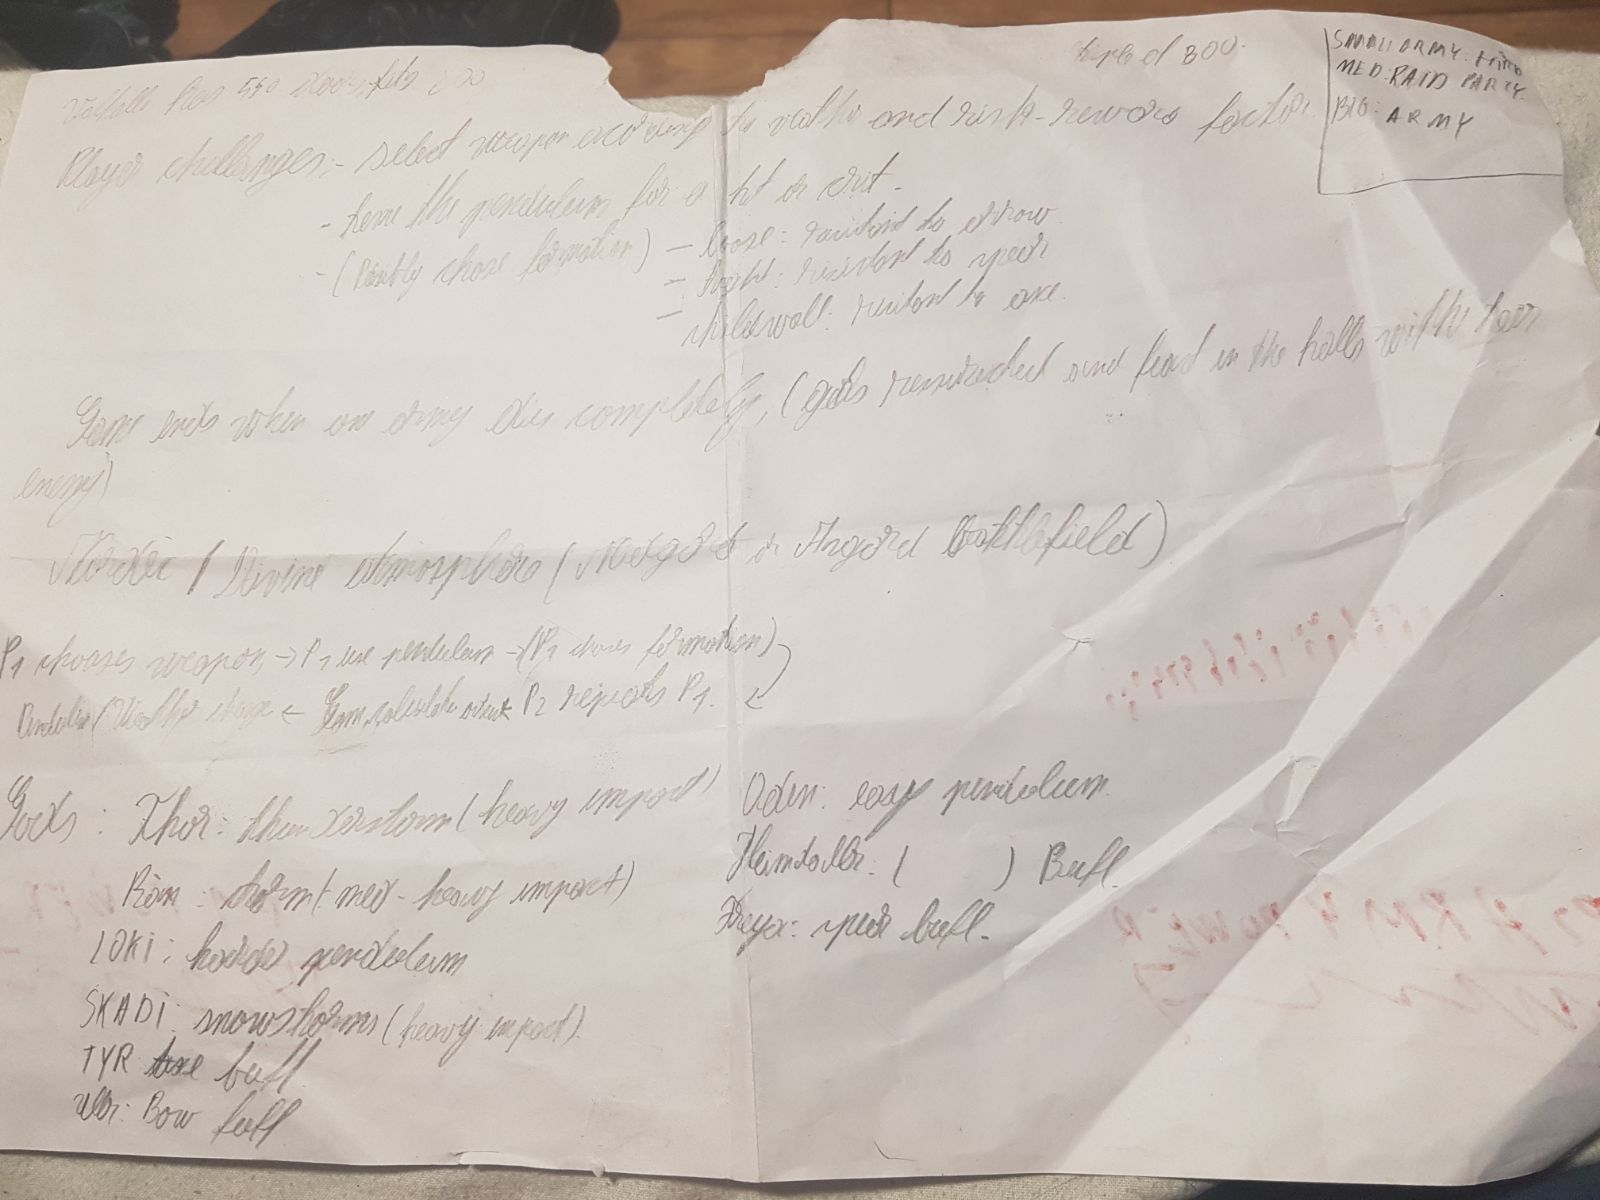 Valhalla has 540 doors, fits 800
instead 800.
SMALL ARMY:
MED: RAID PARTY.
BIG: ARMY
Player challenges:- select weapon according to and risk-reward factor.
- time the pendulum for a hit or crit.
- (Possibly chose formation) - loose: resistant to arrow.
- tight: resistant to spear
- shieldwall: resistant to axe.
Game ends when an army dies completely, (gets resurrected and feast in the halls with their
enemy)
Nordic / Divine atmosphere (Midgard or Asgard Battlefield)
P1 chooses weapon → P1 use pendulum → (P1 choses formation)
Weather change ← Game calculate P2 repeats P1.
Gods: Thor: thunderstorm (heavy impact)
Rán: storm (med-heavy impact)
LOKI: harder pendulum
SKADI: snowstorms (heavy impact).
TYR axe buff
Ullr: Bow buff
Oden: easy pendulum.
Heimdallr: ( ) Buff.
Freya: spear buff.
ARMY POWER